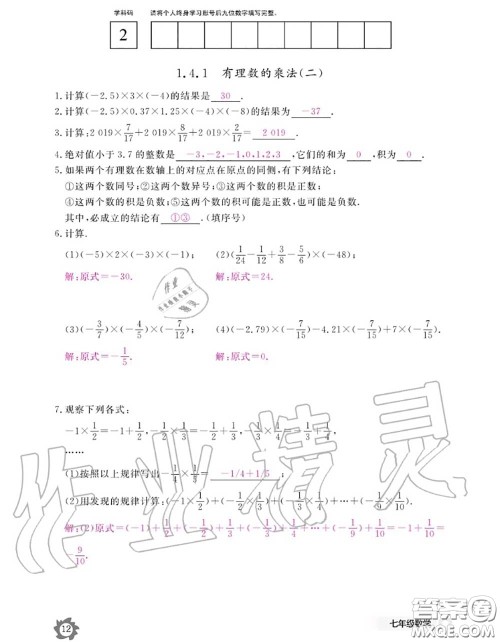 学科码 请将个人终身学习形号后九位数字填写完整。
2
1.4.1 有理数的乘法(二)
1.计算(-2.5)×3×(-4)的结果是 30 .
2.计算(-2.5)×0.37×1.25×(-4)×(-8)的结果为 -37 .
3.计算:2 019×7/17+2 019×8/17+2 019×2/17= 2 019 .
4.绝对值小于3.7的整数是 -3,-2,-1,0,1,2,3 ,它们的和为 0 ,积为 0 .
5.如果两个有理数在数轴上的对应点在原点的同侧,有下列结论:
①这两个数同号;②这两个数异号;③这两个数的积是正数;
④这两个数的积是负数;⑤这两个数的积可能是正数,也可能是负数.
其中,必成立的结论有 ①③ .(填序号)
6.计算.
(1)(-5)×2×(-3)×(-1); (2)(1/24-1/12+3/8-5/6)×(-48);
解:原式=-30. 解:原式=24.
(3)(-3/7)×(-4/5)×(-7/12); (4)(-2.79)×(-7/15)×1.79×(+7/15)×0×(-7/15).
解:原式=-1/5. 解:原式=0.
7.观察下列各式:
-1×1/2=-1+1/2,-1/2×1/3=-1/2+1/3,-1/3×1/4=-1/3+1/4,…
(1)按照以上规律写出-1/4×1/5= -1/4+1/5 ;
(2)用发现的规律计算:(-1×1/2)+(-1/2×1/3)+(-1/3×1/4)+…+(-1/9×1/10).
解:(2)原式=(-1)+1/2+(-1/2)+1/3+(-1/3)+1/4+…+(-1/9)+1/10=-1+1/10=
-9/10.
作业精灵
12
七年级数学